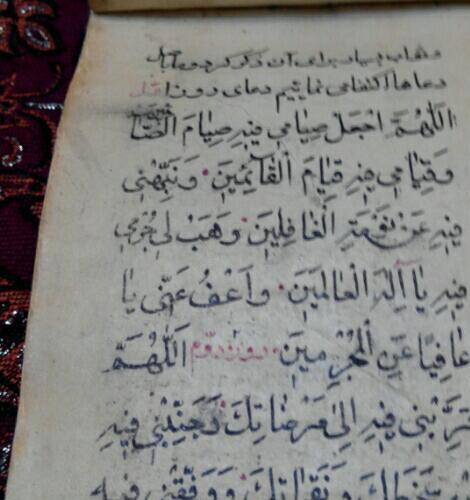 و ثواب بسیار برای آن ذکر کرده‌اند
دعاها اکتفا می نمائیم دعای روز اول
اللَّهُمَّ اجْعَلْ صِيَامِي فِيهِ صِيَامَ الصَّائِمِينَ
وَقِيَامِي فِيهِ قِيَامَ الْقَائِمِينَ وَنَبِّهْنِي
فِيهِ عَنْ نَوْمَةِ الْغَافِلِينَ وَهَبْ لِي جُرْمِي
فِيهِ يَا إِلَهَ الْعَالَمِينَ وَاعْفُ عَنِّي يَا
عَافِيًا عَنِ الْمُجْرِمِينَ روز دوم اللَّهُمَّ
قَرِّبْنِي فِيهِ إِلَى مَرْضَاتِكَ وَجَنِّبْنِي فِيهِ
وَنَقِمَاتِكَ وَوَفِّقْنِي فِيهِ